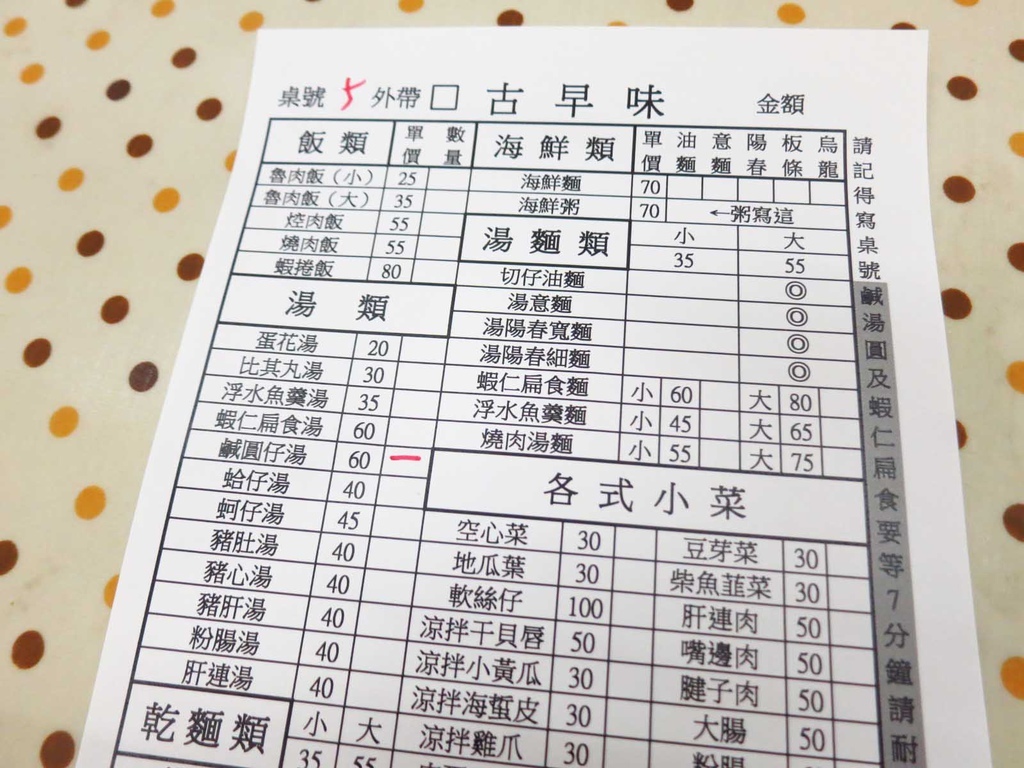 桌號 5 外帶 □ 古早味 金額
飯類 單價 數量
魯肉飯(小) 25
魯肉飯(大) 35
焢肉飯 55
燒肉飯 55
蝦捲飯 80
湯類
蛋花湯 20
比其丸湯 30
浮水魚羹湯 35
蝦仁扁食湯 60
鹹圓仔湯 60 一
蛤仔湯 40
蚵仔湯 45
豬肚湯 40
豬心湯 40
豬肝湯 40
粉腸湯 40
肝連湯 40
乾麵類 小 大
35 55
海鮮類 單價 油麵 意麵 陽春 板條 烏龍
海鮮麵 70
海鮮粥 70 ←粥寫這
湯麵類 小 大
35 55
切仔油麵 ◎
湯意麵 ◎
湯陽春寬麵 ◎
湯陽春細麵 ◎
蝦仁扁食麵 小 60 大 80
浮水魚羹麵 小 45 大 65
燒肉湯麵 小 55 大 75
各式小菜
空心菜 30 豆芽菜 30
地瓜葉 30 柴魚韮菜 30
軟絲仔 100 肝連肉 50
涼拌干貝唇 50 嘴邊肉 50
涼拌小黃瓜 30 腱子肉 50
涼拌海蜇皮 30 大腸 50
涼拌雞爪 30 粉腸
請記得寫桌號鹹湯圓及蝦仁扁食要等7分鐘請耐